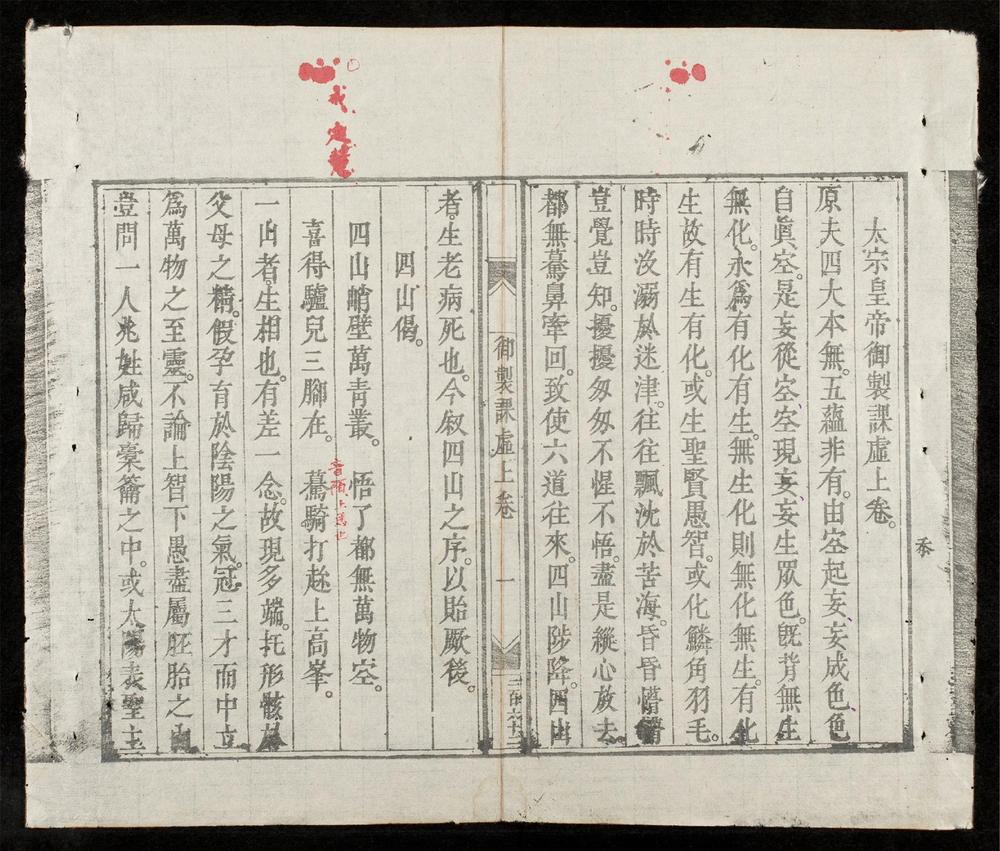 太宗皇帝御製課虛上卷。
原夫四大本無。五蘊非有。由空起妄妄成色色
自眞空。是妄從空空現妄妄生眾色。旣背無生
無化。永爲有化有生。無生化則無化無生。有化
生故有生有化。或生聖賢愚智。或化鱗角羽毛。
時時沒溺於迷津。往往飄沈於苦海。昏昏懵懵
豈覺豈知。擾擾匆匆不惺不悟。盡是縱心放去。
都無驀鼻牽回。致使六道往來。四山陟降。四山
御製課虛上卷 一
者。生老病死也。今叙四山之序。以貽厥後。
四山偈。
四山峭壁萬青叢。 悟了都無萬物空。
喜得驢兒三腳在。 驀騎打趂上高峯。
一山者。生相也。有差一念。故現多端。托形骸於
父母之精。假孕育於陰陽之氣。冠三才而中立
爲萬物之至靈。不論上智下愚盡屬胚胎之內
豈問一人兆姓咸歸槖籥之中。或太陽表聖主